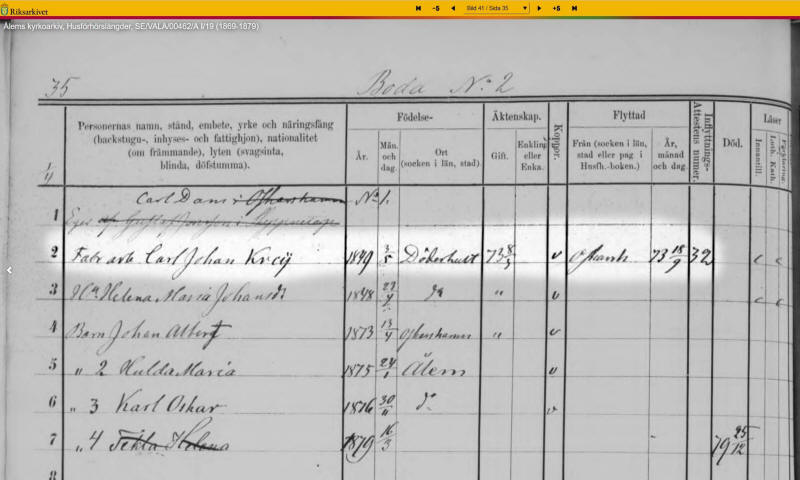 Riksarkivet
-5 Bild 41 / Sida 35 +5
Ålems kyrkoarkiv, Husförhörslängder, SE/VALA/00462/A I/19 (1869-1879)
35 Boda No. 2
Personernas namn, stånd, embete, yrke och näringsfång
(backstugu-, inhyses- och fattighjon), nationalitet
(om främmande), lyten (svagsinta,
blinda, döfstumma).
Födelse-
År.
Mån. och dag.
Ort
(socken i län, stad).
Äktenskap.
Gift.
Enkling eller Enka.
Koppor.
Flyttad
Från (socken i län, stad eller pag i Husfh.-boken.)
År, månad och dag.
Inflyttnings-Attestens numer.
Död.
Läser
Innantill.
Luth. Kath.
1 Carl Dans i Oskarshamn No 1.
Eger
2 Fabr arb Carl Johan Kreij 1849 3/5 Döderhult 73 8/3 v Oskarsh 73 18/9 32
3 Hu Helena Maria Johansdr 1848 do " v
4 Barn Johan Albert 1873 13/4 Oskarshamn " v
5 " 2 Hulda Maria 1875 Ålem v
6 " 3 Karl Oskar 1876 30/11 do v
7 " 4 Tekla Helena 1879 16/3 79 25/12
8